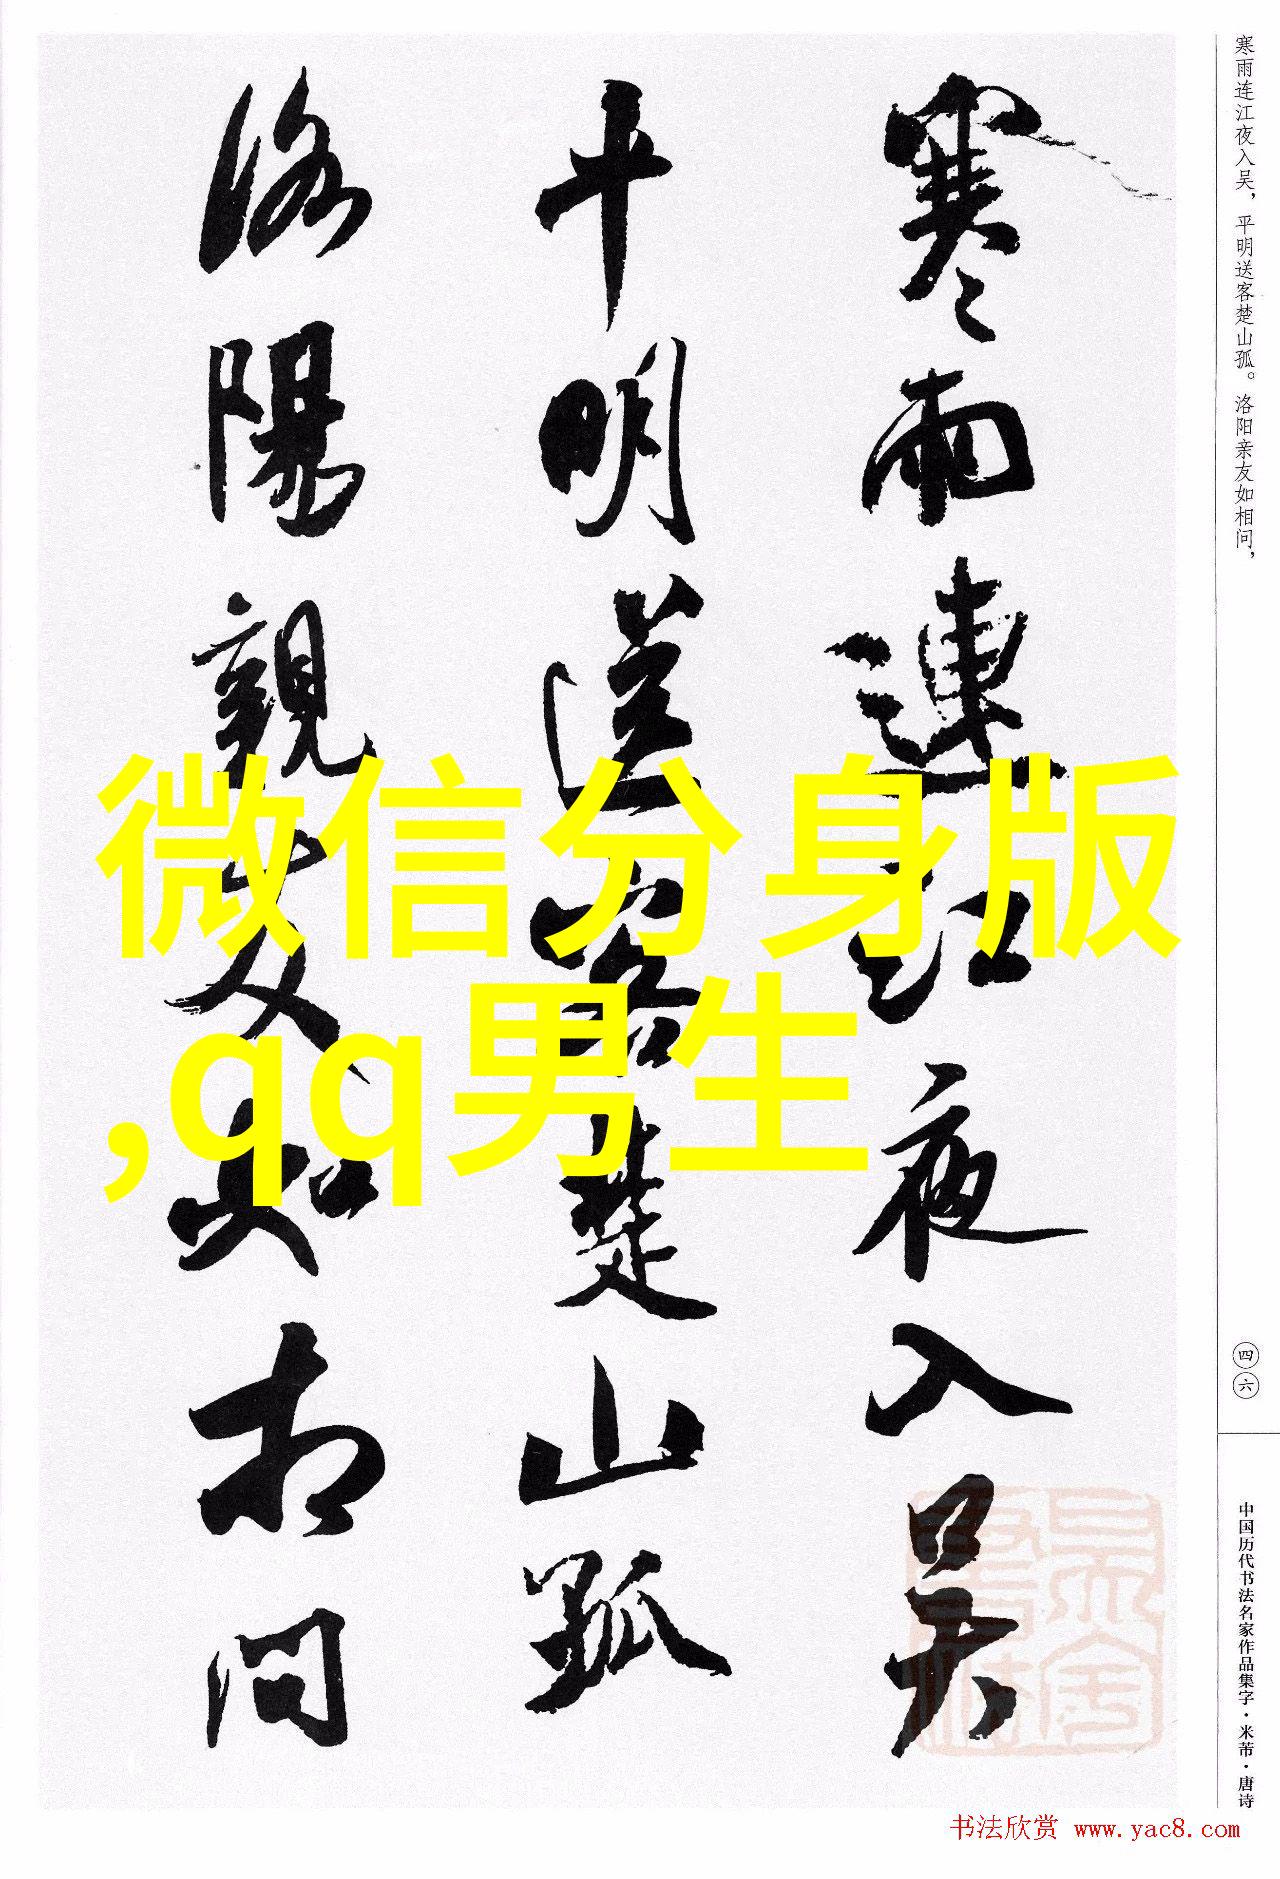 寒雨連江夜入吴
平明送客楚山孤
洛陽親友如相問
微信分身版
,qq男生
寒雨连江夜入吴，平明送客楚山孤。洛阳亲友如相问，
四六
中国历代书法名家作品集字·米芾·唐诗
书法欣赏 www.yac8.com